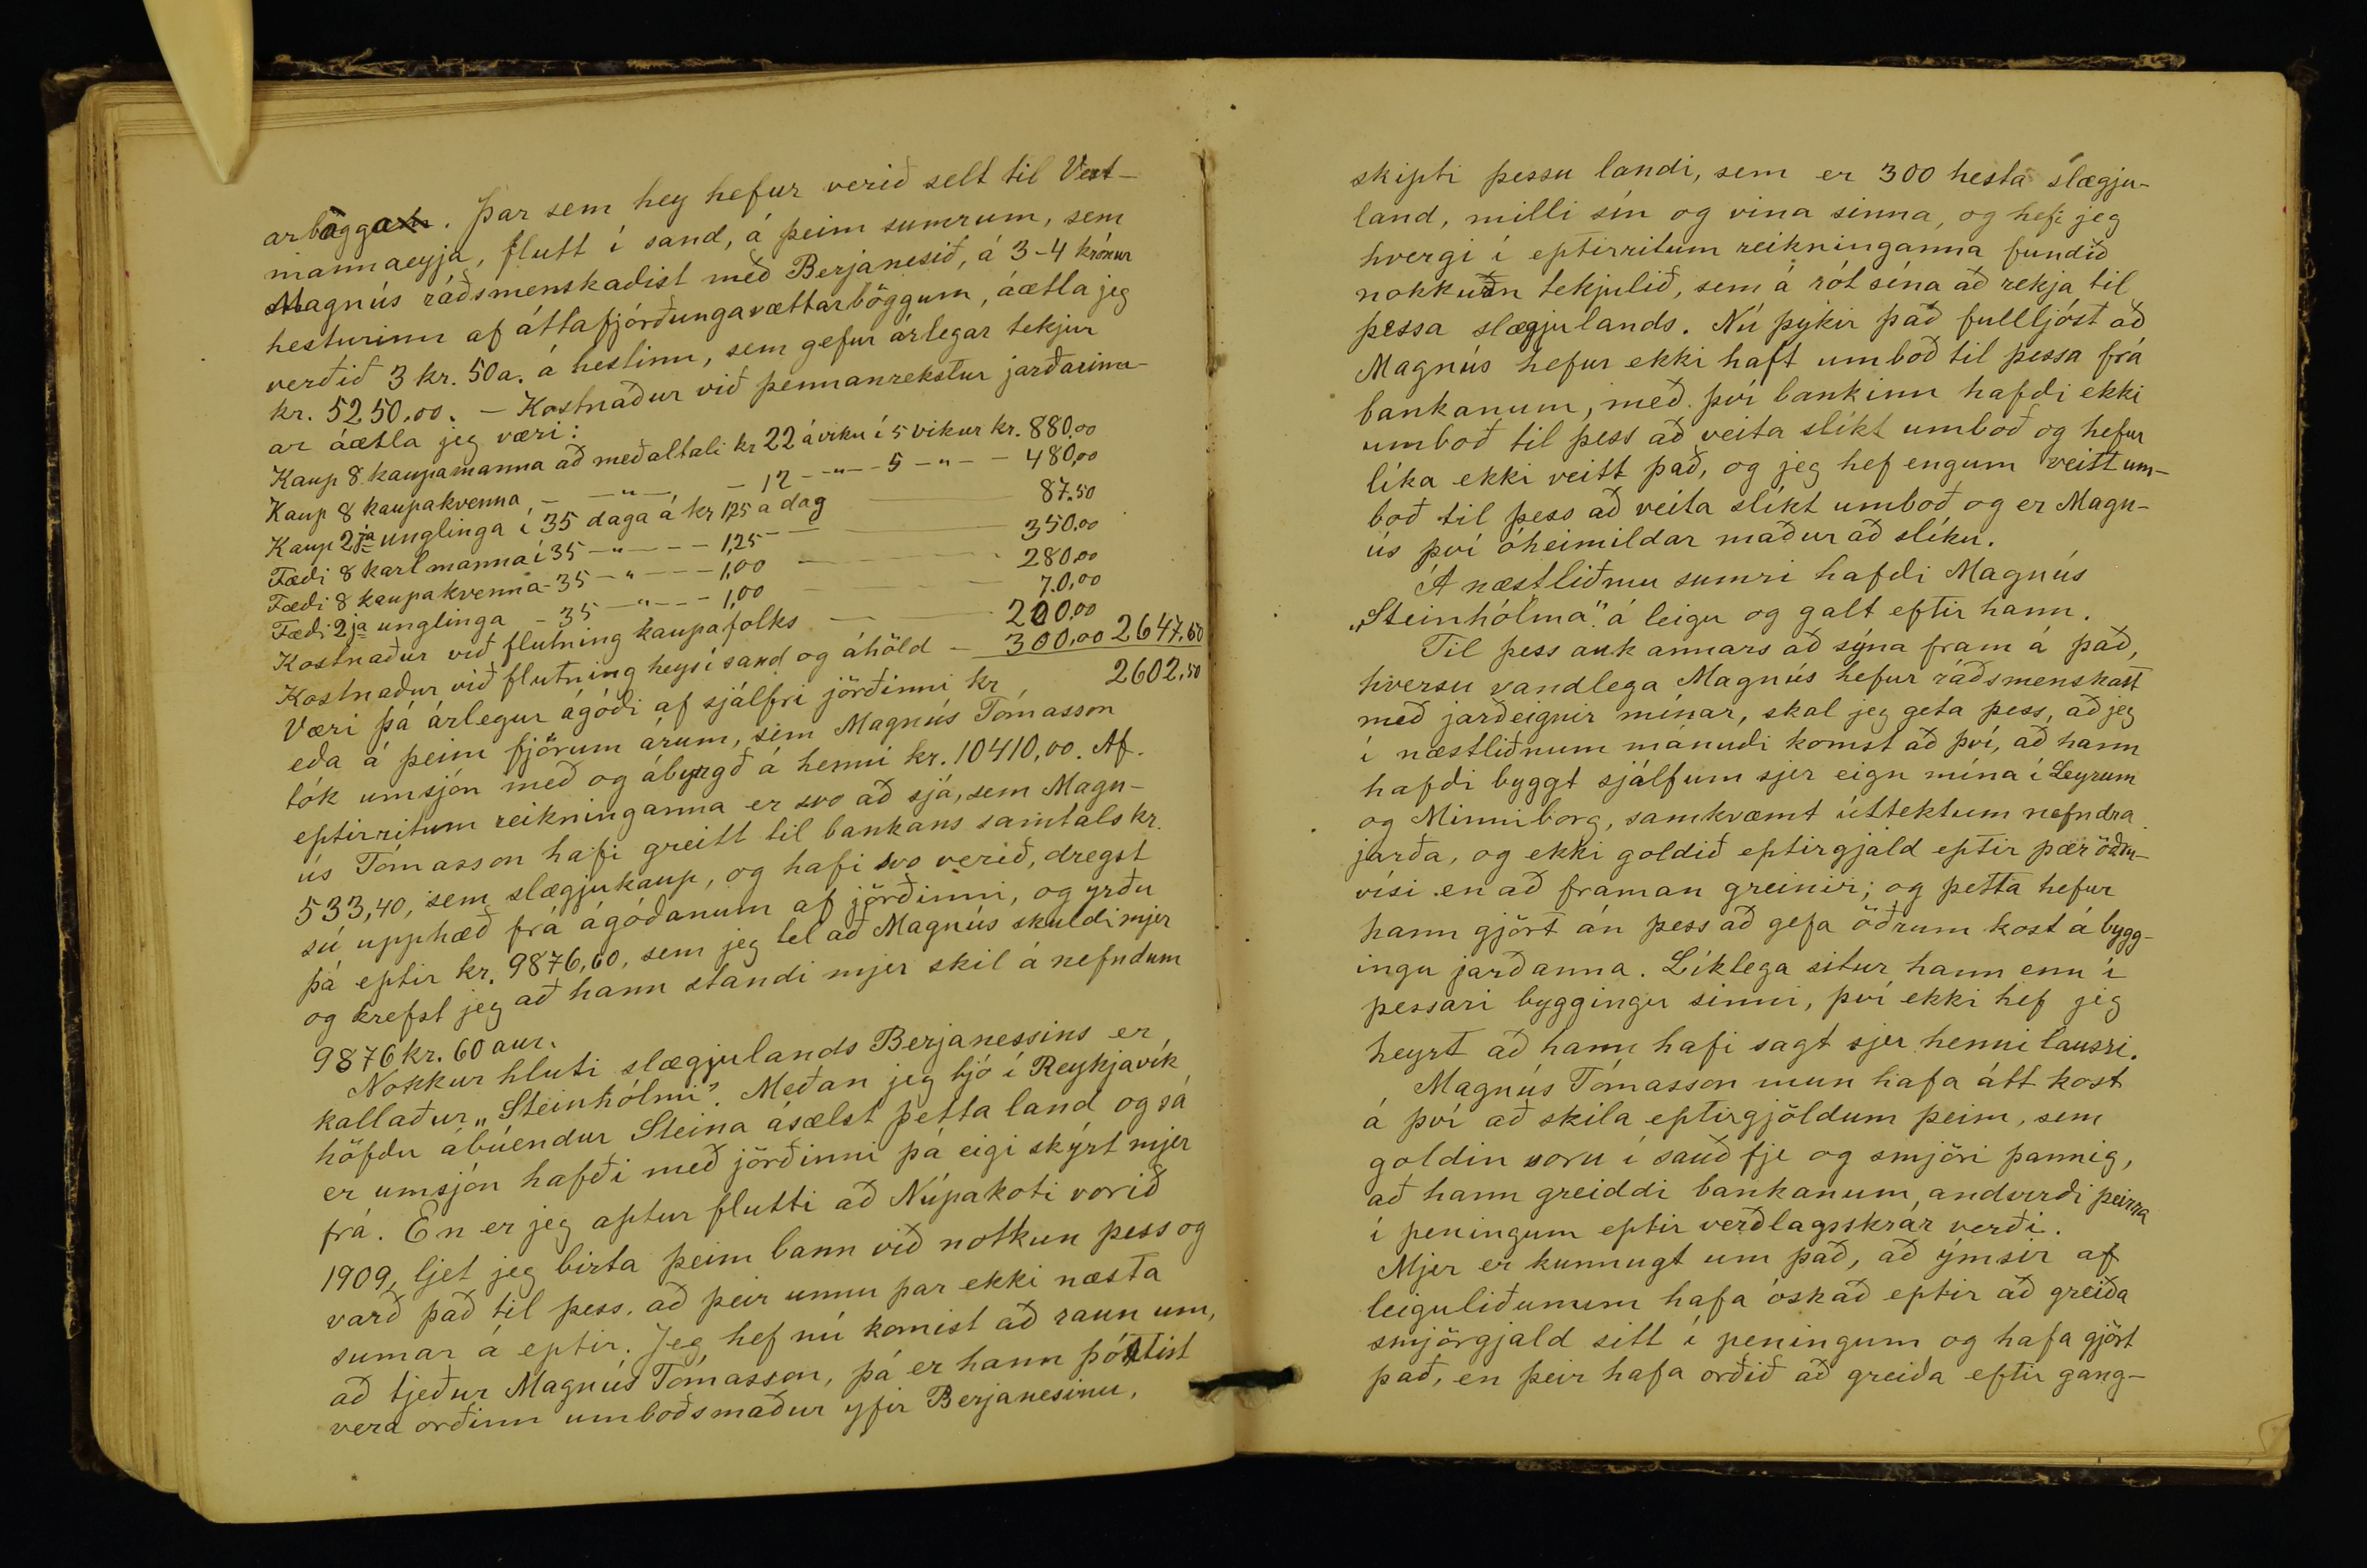 arbagga. Þar sem hey hefur verið selt til Vest-
mannaeyja, flutt í sand, á þeim sumrum, sem
Magnús ráðsmenskadist með Berjanesið, á 3-4 krónur
hesturinn af áttafjórðungavættarböggum, áætla jeg
verðið 3 kr. 50a. á hestinn, sem gefur árlegar tekjur
kr. 5250,00. — Kostnaður við þennanrekstur jarðarinn-
ar áætla jeg væri:
Kaup 8 kaupamanna að meðaltali kr 22 á viku í 5 vikur kr. 880,00
Kaup 8 kaupakvenna — — „ — — 12 — „ — 5 — „ — — 480,00
Kaup 2ja unglinga í 35 daga á kr 1,25 a dag — 87.50
Fæði 8 karlmanna í 35 — „ — — — 1,25 — 350.00
Fæði 8 kaupakvenna - 35 — „ — — — 1,00 — 280,00
Fæði 2ja unglinga - 35 — „ — — — 1,00 — 70,00
Kostnaður við flutning kaupafolks — 200.00
Kostnaður við flutning heys í sand og áhöld — 300,00 2647,50
Væri þá árlegur ágóði af sjálfri jörðinni kr, 2602,50
eða á þeim fjörum árum, sem Magnús Tómasson
tók umsjón með og ábyrgð á henni kr. 10410,00. Af.
eptirritum reikninganna er svo að sjá, sem Magn-
ús Tómasson hafi greitt til bankans samtals kr.
533,40, sem slægjukaup, og hafi svo verið, dregst
sú upphæð frá ágóðanum af jörðinni, og yrðu
þá eptir kr. 9876,60, sem jeg tel að Magnús skuldi mjer
og krefst jeg að hann standi mjer skil á nefndum
9876 kr. 60 aur.
Nokkur hluti slægjulands Berjanessins er
kallaður „Steinhólmi“. Meðan jeg bjó í Reykjavík
höfðu ábúendur Steina ásælst þetta land og sá
er umsjón hafði með jörðinni þá eigi skýrt mjer
frá. En er jeg aptur flutti að Núpakoti vorið
1909, ljet jeg birta þeim bann við notkun þess og
varð það til þess. að þeir unnu þar ekki næsta
sumar á eptir. Jeg hef nú komist að raun um,
að tjeður Magnús Tómasson, þá er hann þóttist
vera orðinn umboðsmaður yfir Berjanesinu,
skipti þessu landi, sem er 300 hesta slægju-
land, milli sín og vina sinna, og hefi jeg
hvergi í eptirritum reikninganna fundið
nokkurn tekjulið, sem á rót sína að rekja til
þessa slægjulands. Nú þykir það fullljóst að
Magnús hefur ekki haft umboð til þessa frá
bankanum, með því bankinn hafði ekki
umboð til þess að veita slíkt umboð og hefur
líka ekki veitt það, og jeg hef engum veitt um-
boð til þess að veita slíkt umboð og er Magn-
ús því óheimildar maður að slíku.
Á næstliðnu sumri hafði Magnús
„Steinhólma“ á leigu og galt eftir hann.
Til þess auk annars að sýna fram á það,
hversu vandlega Magnús hefur ráðsmenskast
með jarðeignir mínar, skal jeg geta þess, að jeg
í næstliðnum mánuði komst að því, að hann
hafði byggt sjálfum sjer eign mína í Leyrum
og Minniborg, samkvæmt úttektum nefndra
jarða, og ekki goldið eptirgjald eptir þær öðru-
vísi en að framan greinir; og þetta hefur
hann gjört án þess að gefa öðrum kost á bygg-
ingu jarðanna. Líklega situr hann enn í
þessari byggingu sinni, því ekki hef jeg
heyrt að hann hafi sagt sjer henni lausri.
Magnús Tómasson mun hafa átt kost
á því að skila eptirgjöldum þeim, sem
goldin voru í sauðfje og smjöri þannig,
að hann greiddi bankanum andvirði þeirra
í peningum eptir verðlagsskrár verði.
Mjer er kunnugt um það, að ýmsir af
leiguliðunum hafa óskað eptir að greiða
smjörgjald sitt í peningum og hafa gjört
það, en þeir hafa orðið að greiða eftir gang-